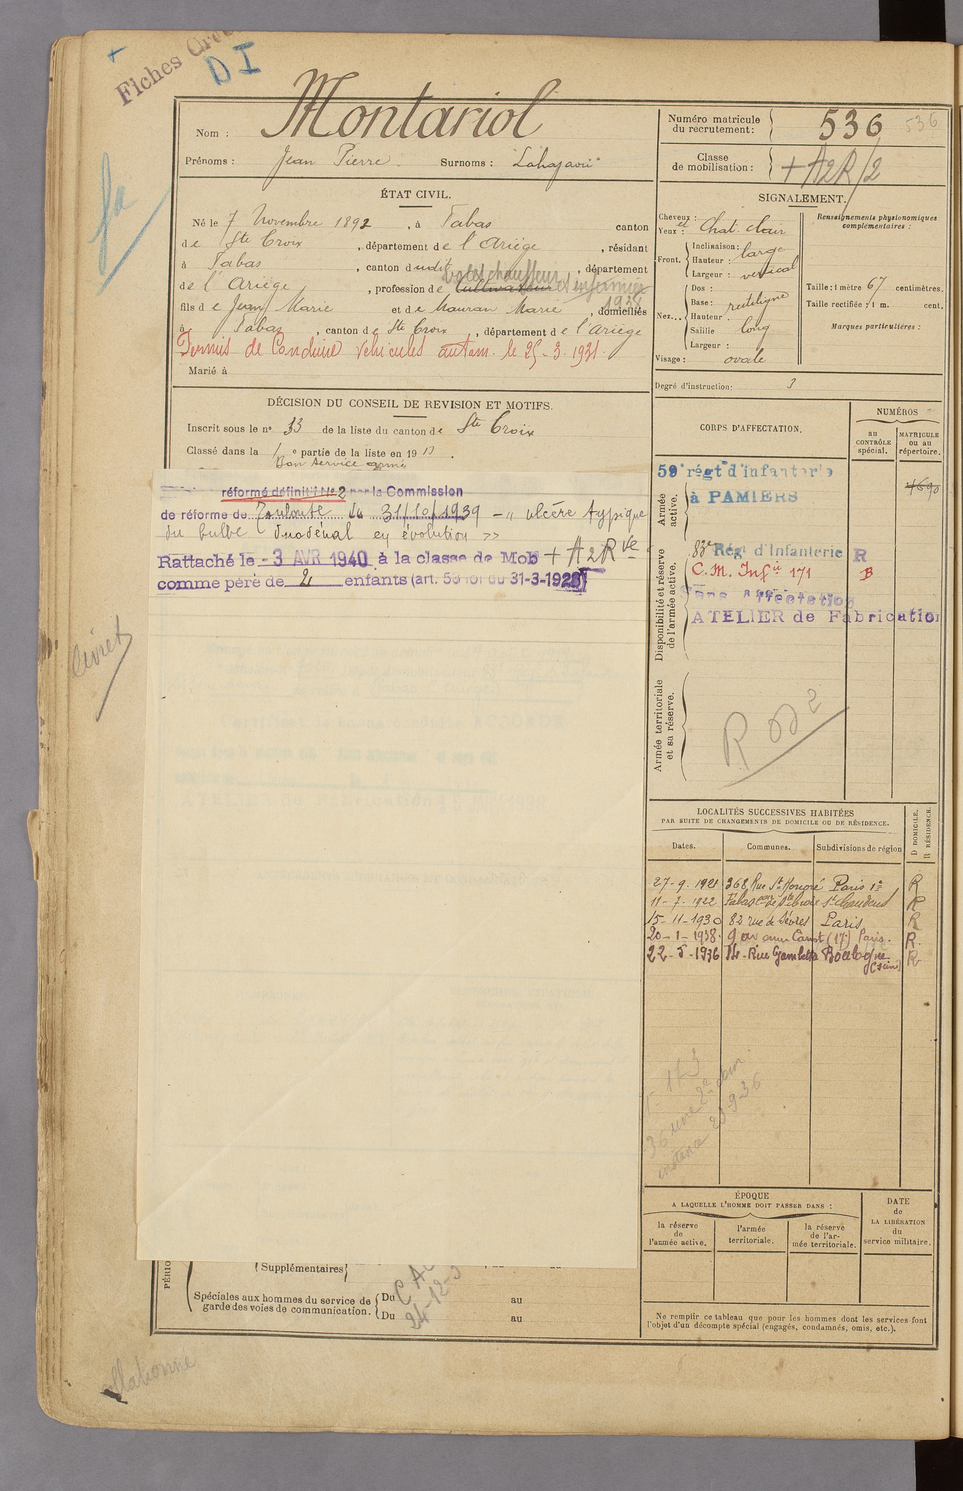 Fiches
D I
Nom : Montariol
Prénoms : Jean Pierre. Surnoms :
Numéro matricule du recrutement: 536 536
Classe de mobilisation : + A2R/2
ÉTAT CIVIL.
Né le 7 Novembre 1892, à Fabas canton
de Ste Croix, département de l'Ariège, résidant
à Fabas, canton dudit, département
de l'Ariège, profession de Cultivateur
chauffeur
1938
fils de Jean Marie et de Mauran Marie, domiciliés
à Fabas, canton de Ste Croix, département de l'Ariège
Permis de Conduire véhicules autom. le 25-3-1931.
Marié à
DÉCISION DU CONSEIL DE REVISION ET MOTIFS.
Inscrit sous le n° 33 de la liste du canton de Ste Croix
Classé dans la 1e partie de la liste en 19
Bon service armé
réformé définitif N° 2 par la Commission
de réforme de Toulouse du 31/10/1939 - " ulcère typique
du bulbe duodénal en évolution >>
Rattaché le - 3 AVR 1940 à la classe de Mob + A2Rve
comme père de 2 enfants (art. 58 loi du 31-3-1928)
SIGNALEMENT.
Cheveux: et
Yeux: Chat. clair
Front. Inclinaison: large
Hauteur :
Largeur : vertical
Nez... Dos :
Base: rectiligne
Hauteur :
Saillie long
Largeur :
Visage : ovale
Renseignements physionomiques complémentaires :
Taille : 1 mètre 67 centimètres.
Taille rectifiée : 1 m. cent.
Marques particulières :
Degré d'instruction: 3
CORPS D'AFFECTATION.
NUMÉROS
au CONTRÔLE spécial.
MATRICULE ou au répertoire.
Armée active.
59e régt d'infanterie
à PAMIERS
4690
Disponibilité et réserve de l'armée active.
83e Régt d'Infanterie R
C. M. Infie 171 B
Sans affectation
ATELIER de Fabrication
Armée territoriale et sa réserve.
LOCALITÉS SUCCESSIVES HABITÉES
PAR SUITE DE CHANGEMENTS DE DOMICILE OU DE RÉSIDENCE.
D DOMICILE.
R RÉSIDENCE.
Dates. Communes. Subdivisions de région
27-9-1921 368, Rue St Honoré Paris 1er R
11-7-1922 Fabas con de Ste Croix St Gaudens R
15-11-1930 82 rue de Sèvres Paris R
20-1-1938. 9 Carnot (17e) Paris. R.
22-5-1936 Rue Gambetta Boulogne (Seine) R
ÉPOQUE
A LAQUELLE L'HOMME DOIT PASSER DANS :
la réserve de l'armée active.
l'armée territoriale.
la réserve de l'armée territoriale.
DATE de LA LIBÉRATION du service militaire.
Supplémentaires
Spéciales aux hommes du service de garde des voies de communication.
Du au
Du au
Ne remplir ce tableau que pour les hommes dont les services font
l'objet d'un décompte spécial (engagés, condamnés, omis, etc.).